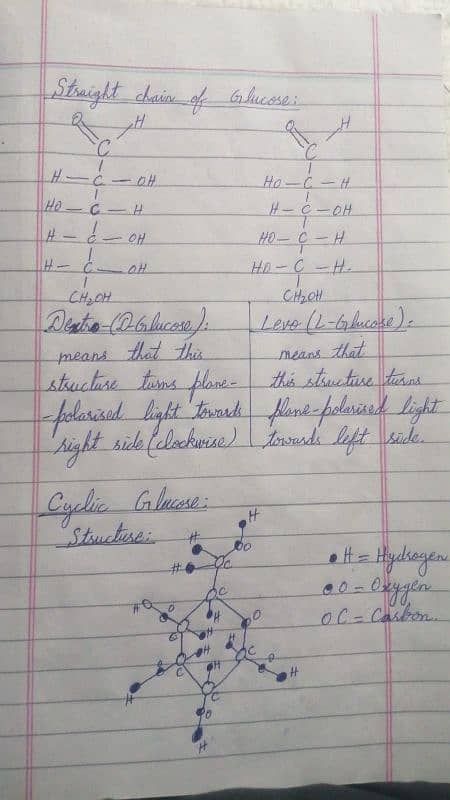 Straight chain of Glucose:
O H
C
H — C — OH
HO — C — H
H — C — OH
H — C — OH
CH₂OH
O H
C
HO — C — H
H — C — OH
HO — C — H
HO — C — H.
CH₂OH
Dextro-(D-Glucose):
means that this
structure turns plane-
-polarised light towards
right side (clockwise)
Levo (L-Glucose):
means that
this structure turns
plane-polarised light
towards left side.
Cyclic Glucose:
Structure:
• H = Hydrogen
• O = Oxygen
O C = Carbon.
H
H O
H C
C
H O H O
C H H C
H O H
O C H
H C
O
H